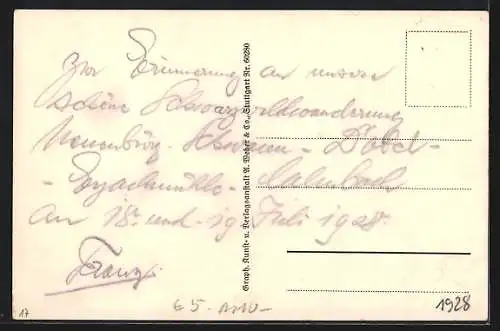 Zur Erinnerung an unsere
schöne Schwarzwaldwanderung
Neuenbürg - Schwann - Dobel -
- Eyachmühle - Calmbach
am 18. und 19. Juli 1928.
Franz.
Graph. Kunst- u. Verlagsanstalt A. Weber & Co., Stuttgart Nr. 60280
17
1928